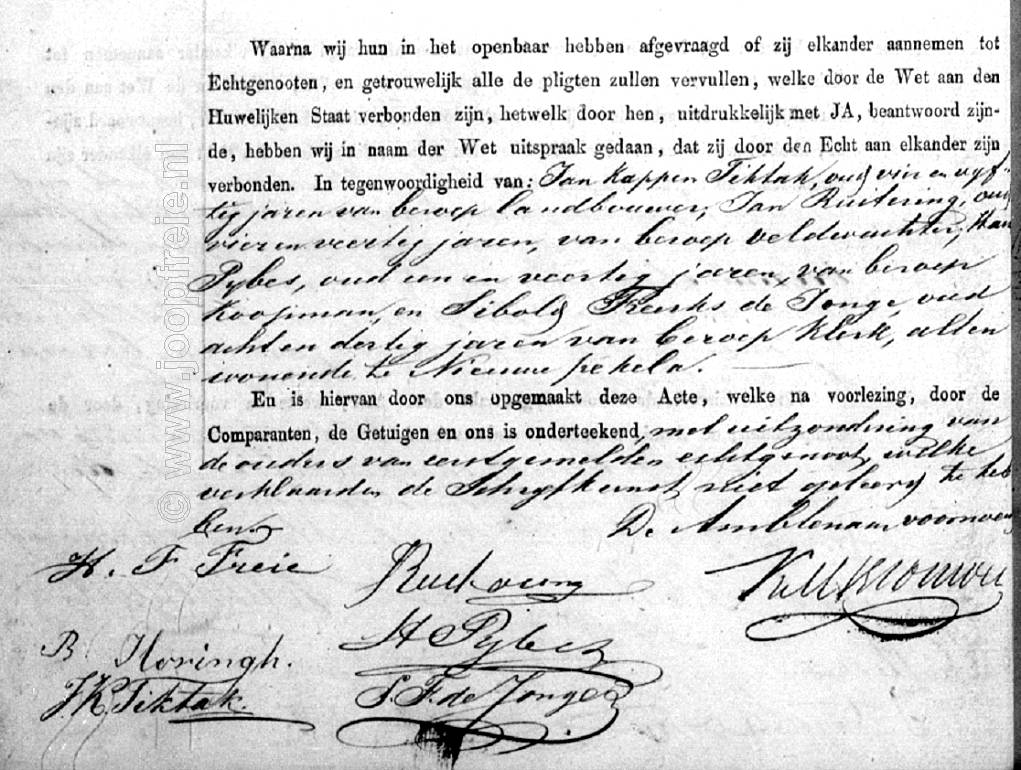 Waarna wij hun in het openbaar hebben afgevraagd of zij elkander aannemen tot
Echtgenooten, en getrouwelijk alle de pligten zullen vervullen, welke door de Wet aan den
Huwelijken Staat verbonden zijn, hetwelk door hen, uitdrukkelijk met JA, beantwoord zijn-
de, hebben wij in naam der Wet uitspraak gedaan, dat zij door den Echt aan elkander zijn
verbonden. In tegenwoordigheid van: Jan Kappen Tiktak, oud vier en vyf-
tig jaren van beroep landbouwer, Jan Ruitering, oud
vier en veertig jaren, van beroep veldwachter, Han
Pybes, oud een en veertig jaren, van beroep
Koopman, en Sibold Freerks de Jonge, oud
acht en dertig jaren van beroep Klerk, allen
wonende te Nieuwe pekela.
En is hiervan door ons opgemaakt deze Acte, welke na voorlezing, door de
Comparanten, de Getuigen en ons is onderteekend, met uitzondering van
de ouders van eerstgemelden echtgenoot, welke
verklaarden de Schryfkunst niet geleerd te heb
ben.
De Ambtenaar voornoemd
H. F Freie
H Pybes
B Horingh.
J K Tiktak.
S. F. de Jonge
© www.joopfreie.nl